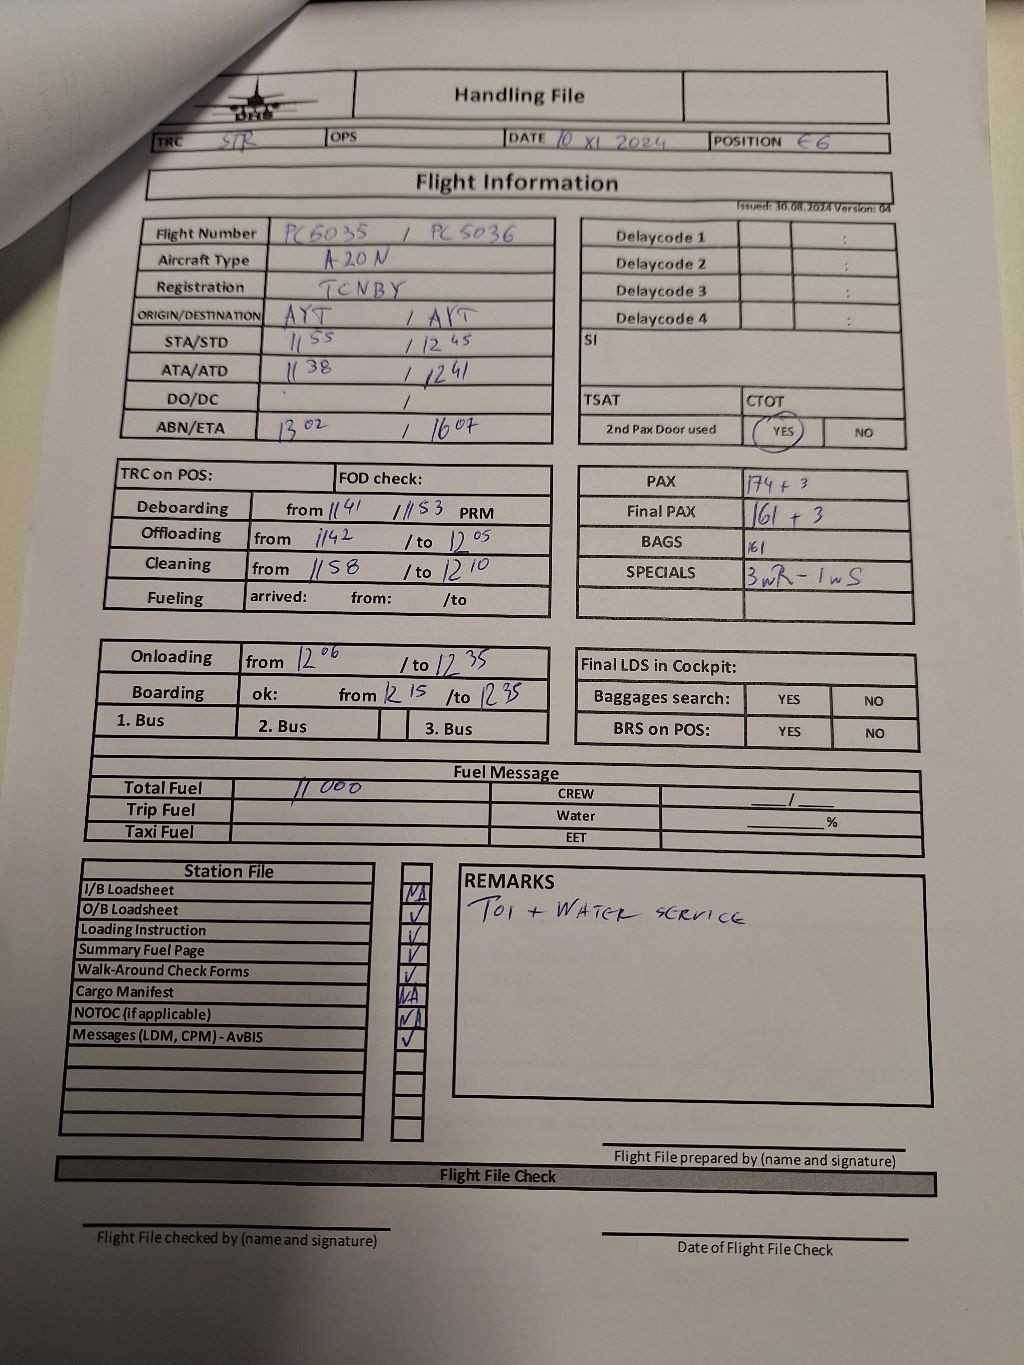 DHS
Handling File
TRC STR OPS DATE 10 XI 2024 POSITION E6
Flight Information
Issued: 30.08.2024 Version: 04
Flight Number PC5035 / PC5036
Aircraft Type A20N
Registration TCNBY
ORIGIN/DESTINATION AYT / AYT
STA/STD 1155 / 1245
ATA/ATD 1138 / 1241
DO/DC /
ABN/ETA 1302 / 1607
Delaycode 1 :
Delaycode 2 :
Delaycode 3 :
Delaycode 4 :
SI
TSAT CTOT
2nd Pax Door used YES NO
TRC on POS: FOD check:
Deboarding from 1141 / 1153 PRM
Offloading from 1142 / to 1205
Cleaning from 1158 / to 1210
Fueling arrived: from: /to
PAX 174 + 3
Final PAX 161 + 3
BAGS 161
SPECIALS 3wR - 1wS
Onloading from 1206 / to 1235
Boarding ok: from 1215 /to 1235
1. Bus 2. Bus 3. Bus
Final LDS in Cockpit:
Baggages search: YES NO
BRS on POS: YES NO
Fuel Message
Total Fuel 11000 CREW ___/___
Trip Fuel Water ______%
Taxi Fuel EET
Station File
I/B Loadsheet NA
O/B Loadsheet ✓
Loading Instruction ✓
Summary Fuel Page ✓
Walk-Around Check Forms ✓
Cargo Manifest NA
NOTOC (if applicable) NA
Messages (LDM, CPM) - AvBIS ✓
REMARKS
TOI + WATER SERVICE
Flight File prepared by (name and signature)
Flight File Check
Flight File checked by (name and signature)
Date of Flight File Check